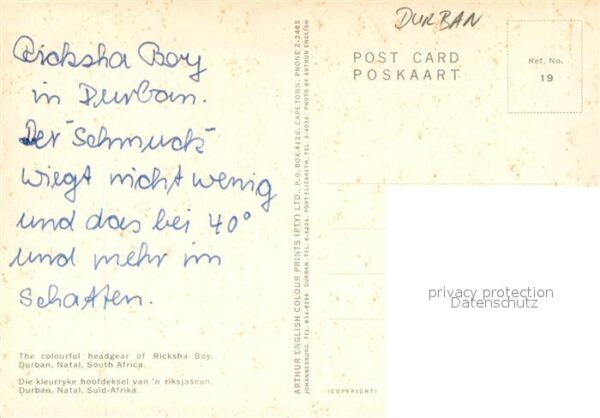 DURBAN
Ricksha Boy
in Durban.
Der "Schmuck"
wiegt nicht wenig
und das bei 40°
und mehr im
Schatten.
The colourful headgear of Ricksha Boy,
Durban, Natal, South Africa.
Die kleurryke hoofdeksel van 'n riksjaseun,
Durban, Natal, Suid-Afrika.
ARTHUR ENGLISH COLOUR PRINTS (PTY) LTD., P.O. BOX 4129, CAPE TOWN, PHONE 2-3485
JOHANNESBURG, TEL. DURBAN, TEL. PORT ELIZABETH, TEL. 2-4034 PHOTO BY ARTHUR ENGLISH
POST CARD
POSKAART
Ref. No.
19
privacy protection
Datenschutz
(COPYRIGHT)